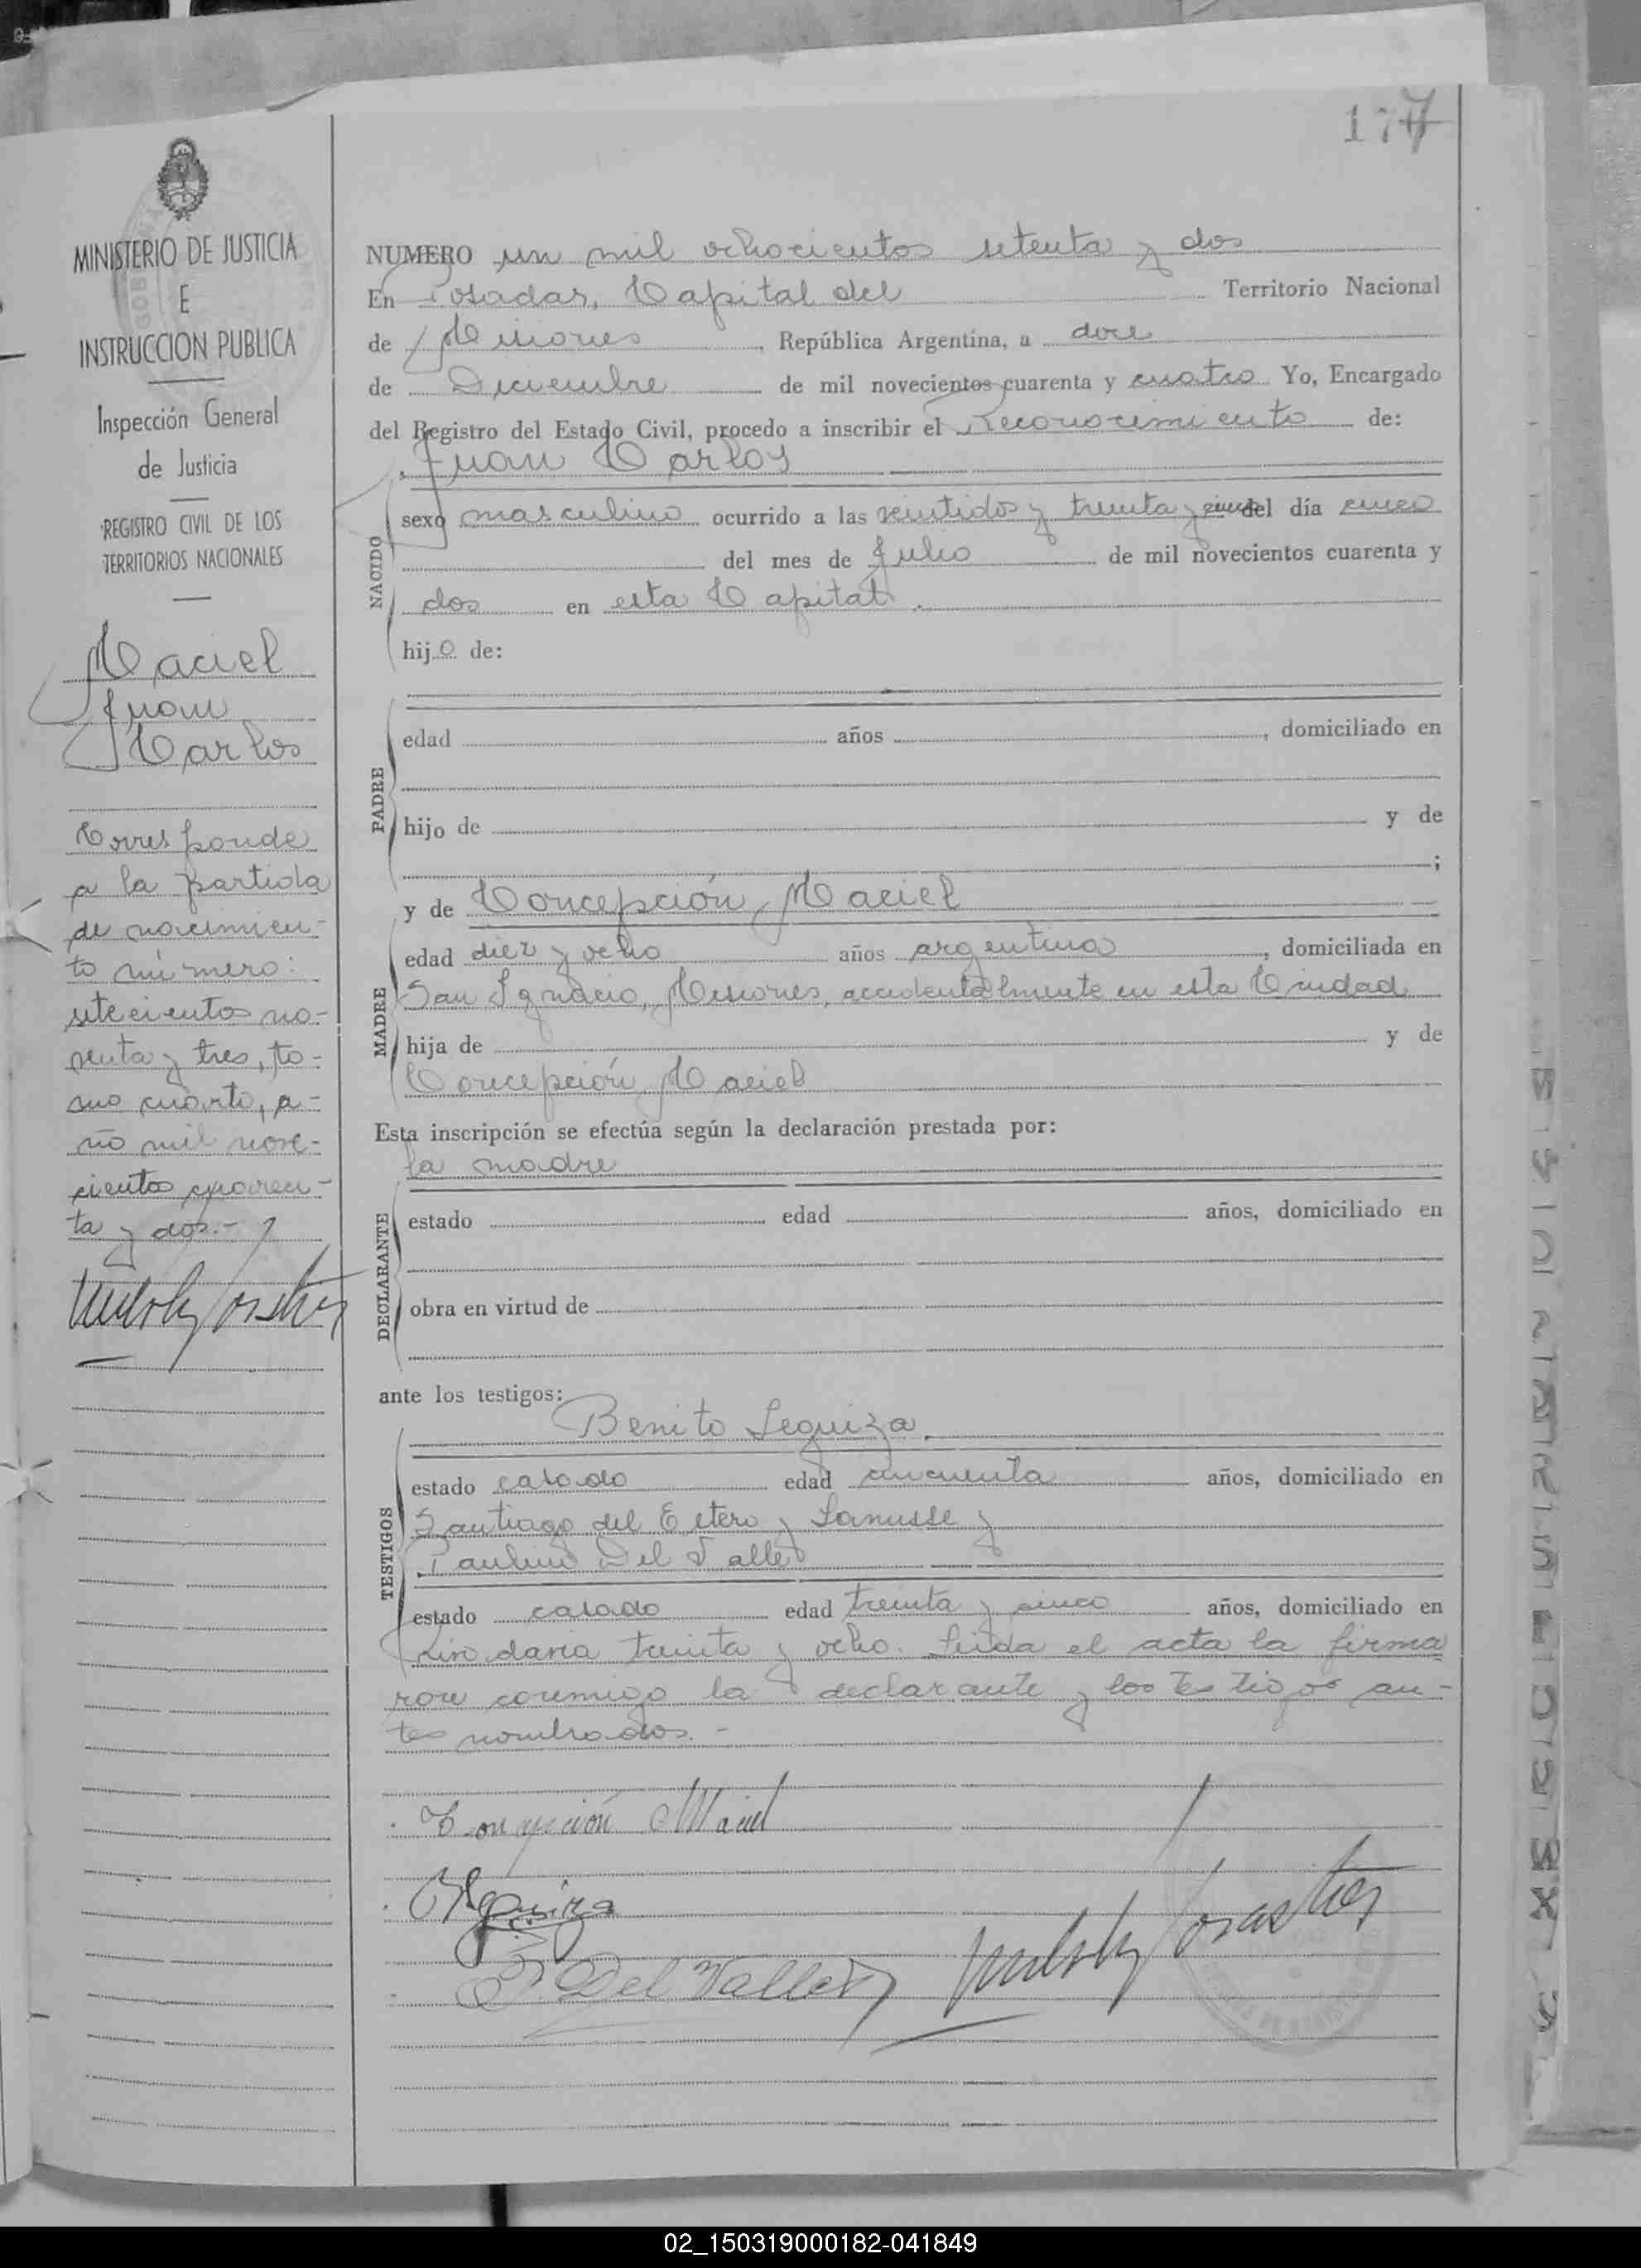 177
MINISTERIO DE JUSTICIA
E
INSTRUCCION PUBLICA
Inspección General
de Justicia
REGISTRO CIVIL DE LOS
TERRITORIOS NACIONALES
Maciel
Juan
Carlos
Corresponde
a la partida
de nacimien-
to número:
setecientos no-
venta y tres, to-
mo cuarto, a-
ño mil nove-
cientos cuaren-
ta y dos.-
NUMERO un mil ochocientos setenta y dos
En Posadas, Capital del Territorio Nacional
de Misiones, República Argentina, a doce
de Diciembre de mil novecientos cuarenta y cuatro Yo, Encargado
del Registro del Estado Civil, procedo a inscribir el Reconocimiento de:
Juan Carlos
NACIDO
sexo masculino ocurrido a las veintidos y treinta y del día cinco
del mes de Julio de mil novecientos cuarenta y
dos en esta Capital.
hijo de:
PADRE
edad años , domiciliado en
hijo de y de
;
y de Concepción Maciel
MADRE
edad diez y ocho años argentina, domiciliada en
San Ignacio, Misiones, accidentalmente en esta Ciudad
hija de y de
Concepción Maciel
Esta inscripción se efectúa según la declaración prestada por:
la madre
DECLARANTE
estado edad años, domiciliado en
obra en virtud de
ante los testigos:
Benito Leguiza.
TESTIGOS
estado casado edad cincuenta años, domiciliado en
Santiago del Estero y Lanusse y
Paulino Del Valle
estado casado edad treinta y cinco años, domiciliado en
Rivadavia treinta y ocho. Leida el acta la firma
ron conmigo la declarante y los testigos an-
tes nombrados.-
Concepción Maciel
Leguiza
P. Del Valle
02_150319000182-041849